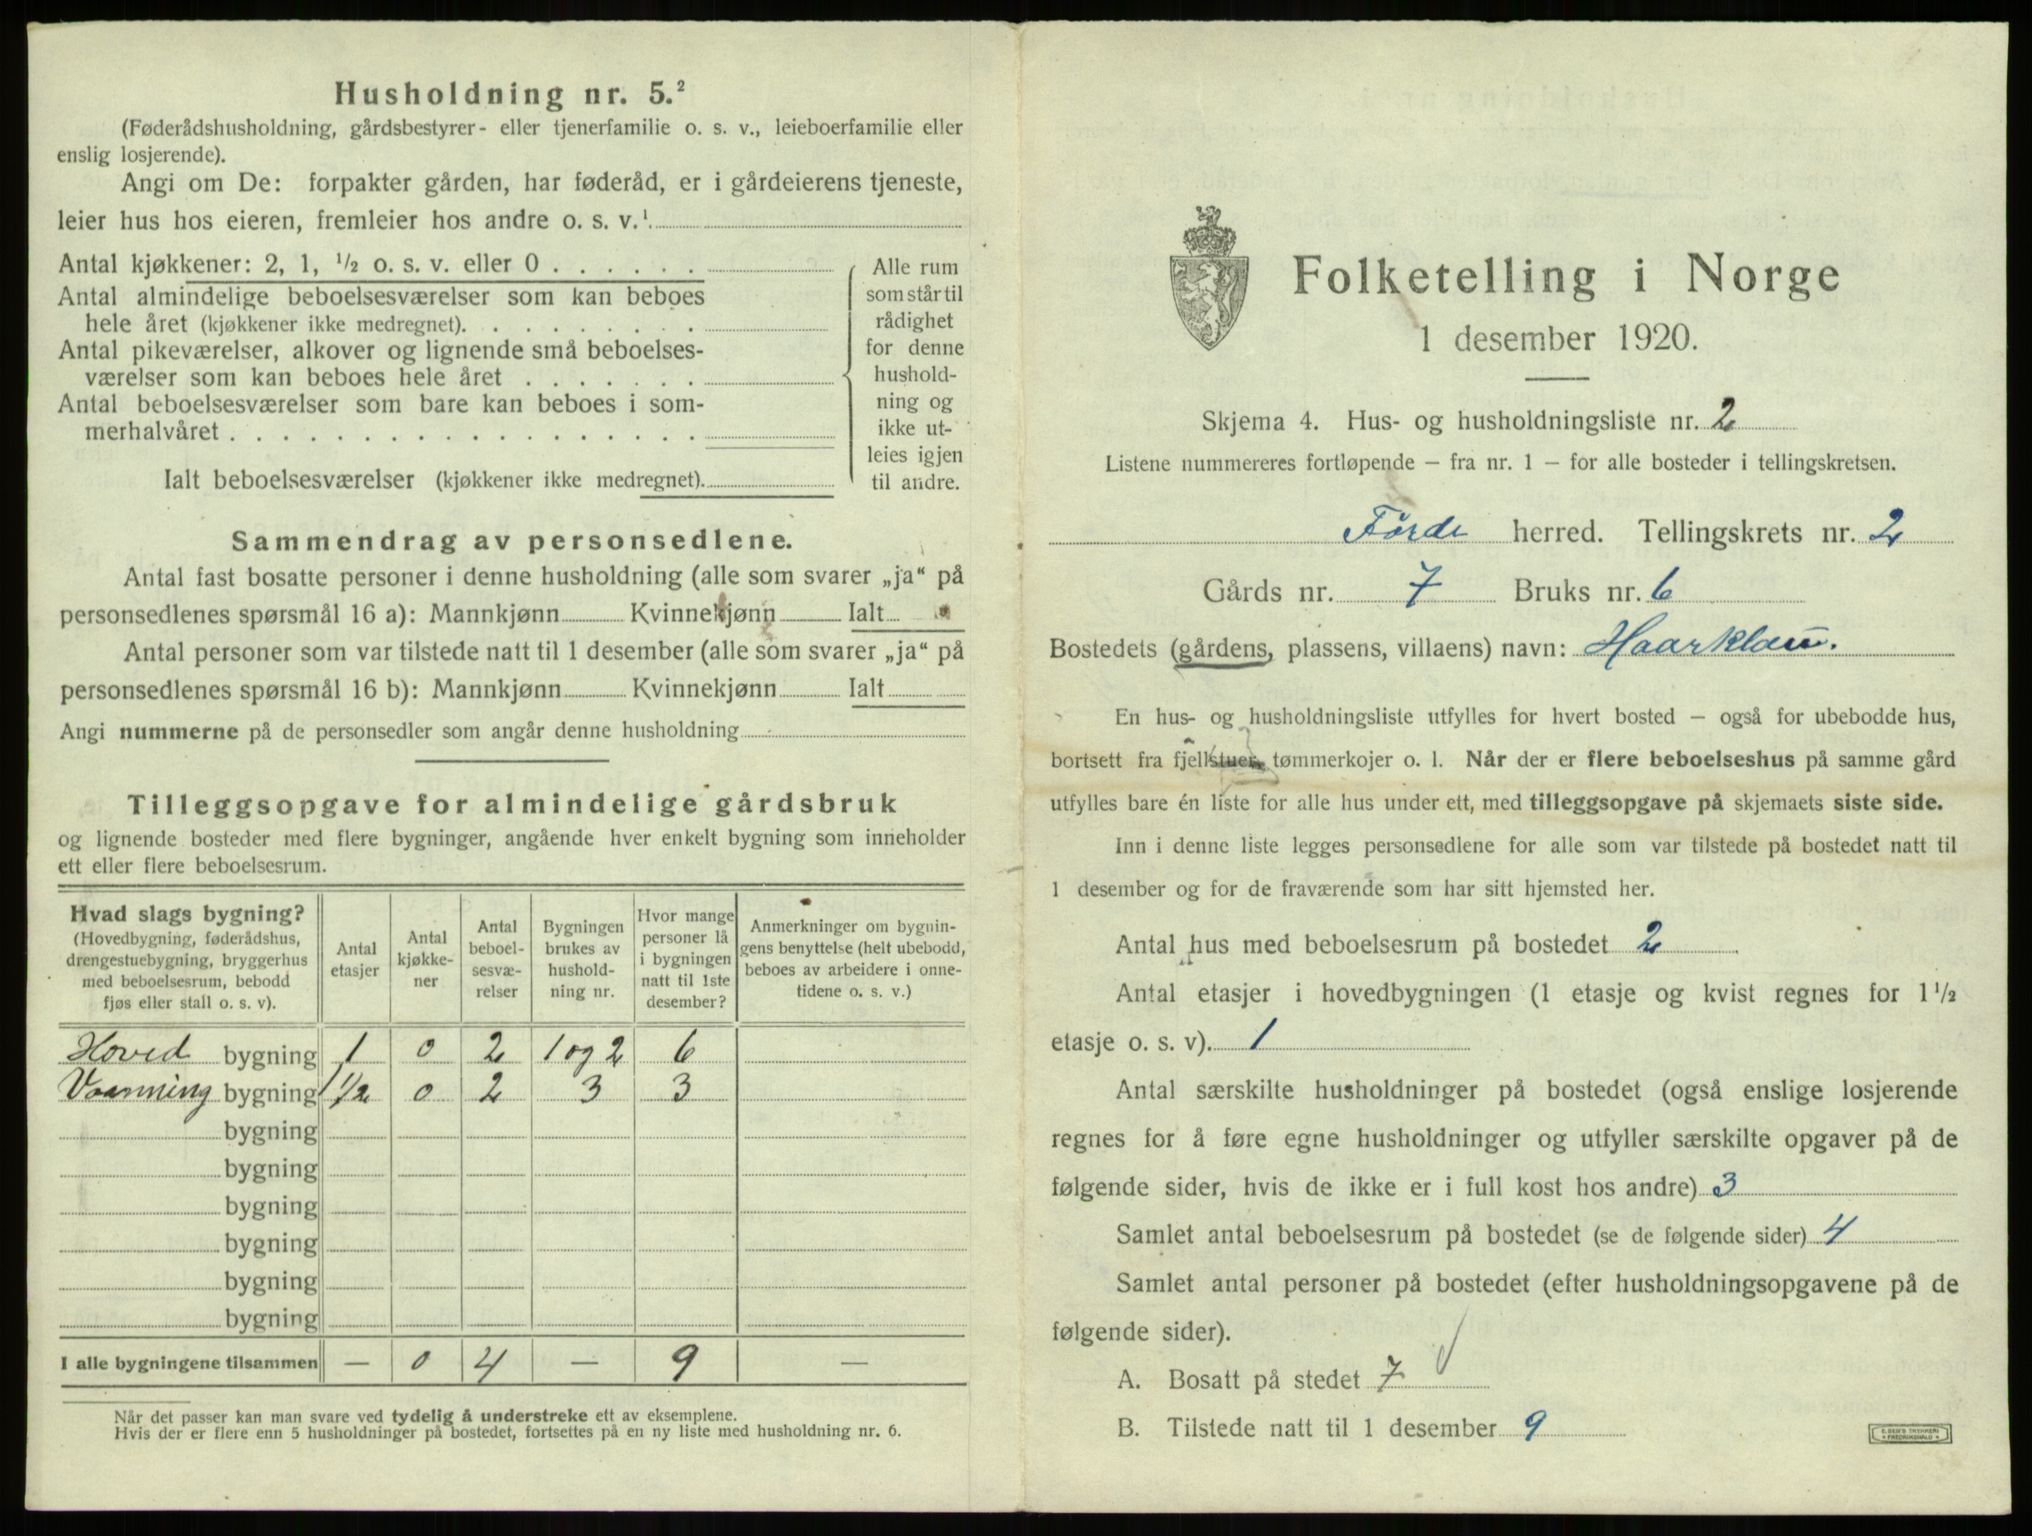 Husholdning nr. 5.²
(Føderådshusholdning, gårdsbestyrer- eller tjenerfamilie o. s. v., leieboerfamilie eller
enslig losjerende).
Angi om De: forpakter gården, har føderåd, er i gårdeierens tjeneste,
leier hus hos eieren, fremleier hos andre o. s. v.¹
Antal kjøkkener: 2, 1, ½ o. s. v. eller 0
Antal almindelige beboelsesværelser som kan beboes
hele året (kjøkkener ikke medregnet).
Antal pikeværelser, alkover og lignende små beboelses-
værelser som kan beboes hele året
Antal beboelsesværelser som bare kan beboes i som-
merhalvåret
Ialt beboelsesværelser (kjøkkener ikke medregnet).
Alle rum
som står til
rådighet
for denne
hushold-
ning og
ikke ut-
leies igjen
til andre.
Sammendrag av personsedlene.
Antal fast bosatte personer i denne husholdning (alle som svarer „ja“ på
personsedlenes spørsmål 16 a): Mannkjønn Kvinnekjønn Ialt
Antal personer som var tilstede natt til 1 desember (alle som svarer „ja“ på
personsedlenes spørsmål 16 b): Mannkjønn Kvinnekjønn Ialt
Angi nummerne på de personsedler som angår denne husholdning
Tilleggsopgave for almindelige gårdsbruk
og lignende bosteder med flere bygninger, angående hver enkelt bygning som inneholder
ett eller flere beboelsesrum.
Hvad slags bygning?
(Hovedbygning, føderådshus,
drengestuebygning, bryggerhus
med beboelsesrum, bebodd
fjøs eller stall o. s. v).
Antal
etasjer
Antal
kjøkke-
ner
Antal
beboel-
sesvæ-
relser
Bygningen
brukes av
hushold-
ning nr.
Hvor mange
personer lå
i bygningen
natt til 1ste
desember?
Anmerkninger om bygnin-
gens benyttelse (helt ubebodd,
beboes av arbeidere i onne-
tidene o. s. v.)
Hoved bygning 1 0 2 1 og 2 6
Vaanning bygning 1½ 0 2 3 3
bygning
bygning
bygning
bygning
bygning
bygning
I alle bygningene tilsammen — 0 4 — 9 —
Når det passer kan man svare ved tydelig å understreke ett av eksemplene.
Hvis der er flere enn 5 husholdninger på bostedet, fortsettes på en ny liste med husholdning nr. 6.
Folketelling i Norge
1 desember 1920.
Skjema 4. Hus- og husholdningsliste nr. 2
Listene nummereres fortløpende — fra nr. 1 — for alle bosteder i tellingskretsen.
Førde herred. Tellingskrets nr. 2
Gårds nr. 7 Bruks nr. 6
Bostedets (gårdens, plassens, villaens) navn: Haarklau.
En hus- og husholdningsliste utfylles for hvert bosted — også for ubebodde hus,
bortsett fra fjellstuer, tømmerkojer o. l. Når der er flere beboelseshus på samme gård
utfylles bare én liste for alle hus under ett, med tilleggsopgave på skjemaets siste side.
Inn i denne liste legges personsedlene for alle som var tilstede på bostedet natt til
1 desember og for de fraværende som har sitt hjemsted her.
Antal hus med beboelsesrum på bostedet 2
Antal etasjer i hovedbygningen (1 etasje og kvist regnes for 1½
etasje o. s. v). 1
Antal særskilte husholdninger på bostedet (også enslige losjerende
regnes for å føre egne husholdninger og utfyller særskilte opgaver på de
følgende sider, hvis de ikke er i full kost hos andre) 3
Samlet antal beboelsesrum på bostedet (se de følgende sider) 4
Samlet antal personer på bostedet (efter husholdningsopgavene på de
følgende sider).
A. Bosatt på stedet 7
B. Tilstede natt til 1 desember 9